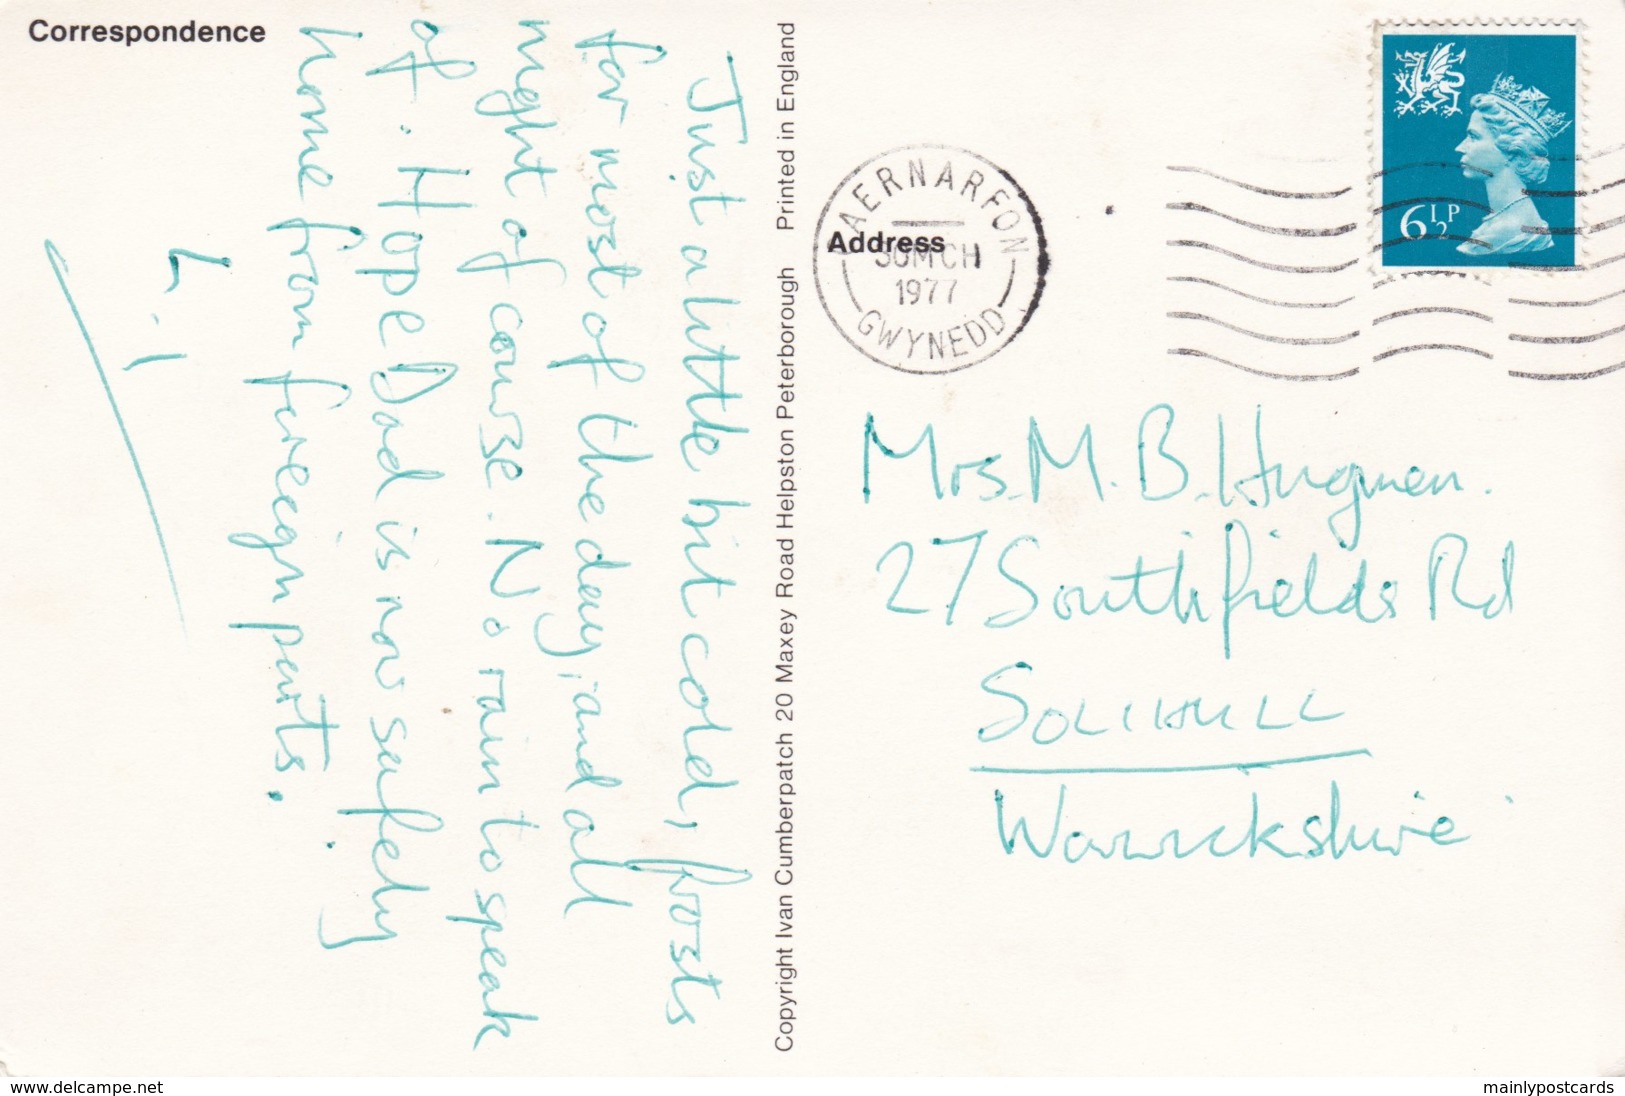 Correspondence
Just a little bit cold, frosts
for most of the day, and all
night of course. No rain to speak
of. Hope Dad is now safely
home from foreign parts.
Copyright Ivan Cumberpatch 20 Maxey Road Helpston Peterborough Printed in England
CAERNARFON
30MCH
1977
GWYNEDD
Address
6½P
Mrs. M. B. Hugmen.
27 Southfields Rd
SOLIHULL
Warwickshire
www.delcampe.net
mainlypostcards